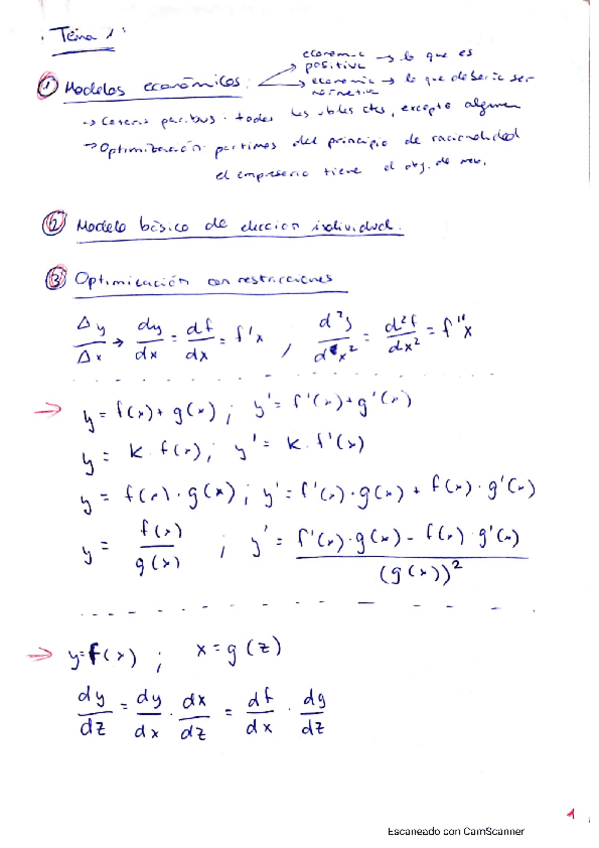 · Tema 1:
① Modelos económicos:
economía positiva → lo que es
economía normativa → lo que debería ser
→ Ceteris paribus. todas las vbles ctes, excepto alguna
→ Optimización: partimos del principio de racionalidad
el empresario tiene el obj. de
② Modelo básico de eleccion individual.
③ Optimización con restricciones
Δy/Δx → dy/dx = df/dx = f'x , d²y/dx² = d²f/dx² = f''x
→ y = f(x) + g(x) ; y' = f'(x) + g'(x)
y = k · f(x) ; y' = k · f'(x)
y = f(x) · g(x) ; y' = f'(x) · g(x) + f(x) · g'(x)
y = f(x)/g(x) ; y' = f'(x) · g(x) - f(x) · g'(x)/(g(x))²
→ y = f(x) ; x = g(z)
dy/dz = dy/dx · dx/dz = df/dx · dg/dz
1
Escaneado con CamScanner